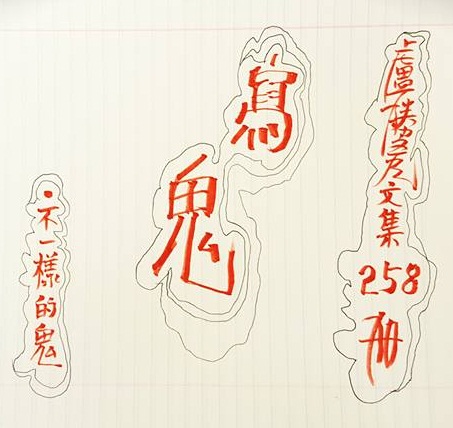 盧勝彥文集258冊
寫鬼
·不一樣的鬼